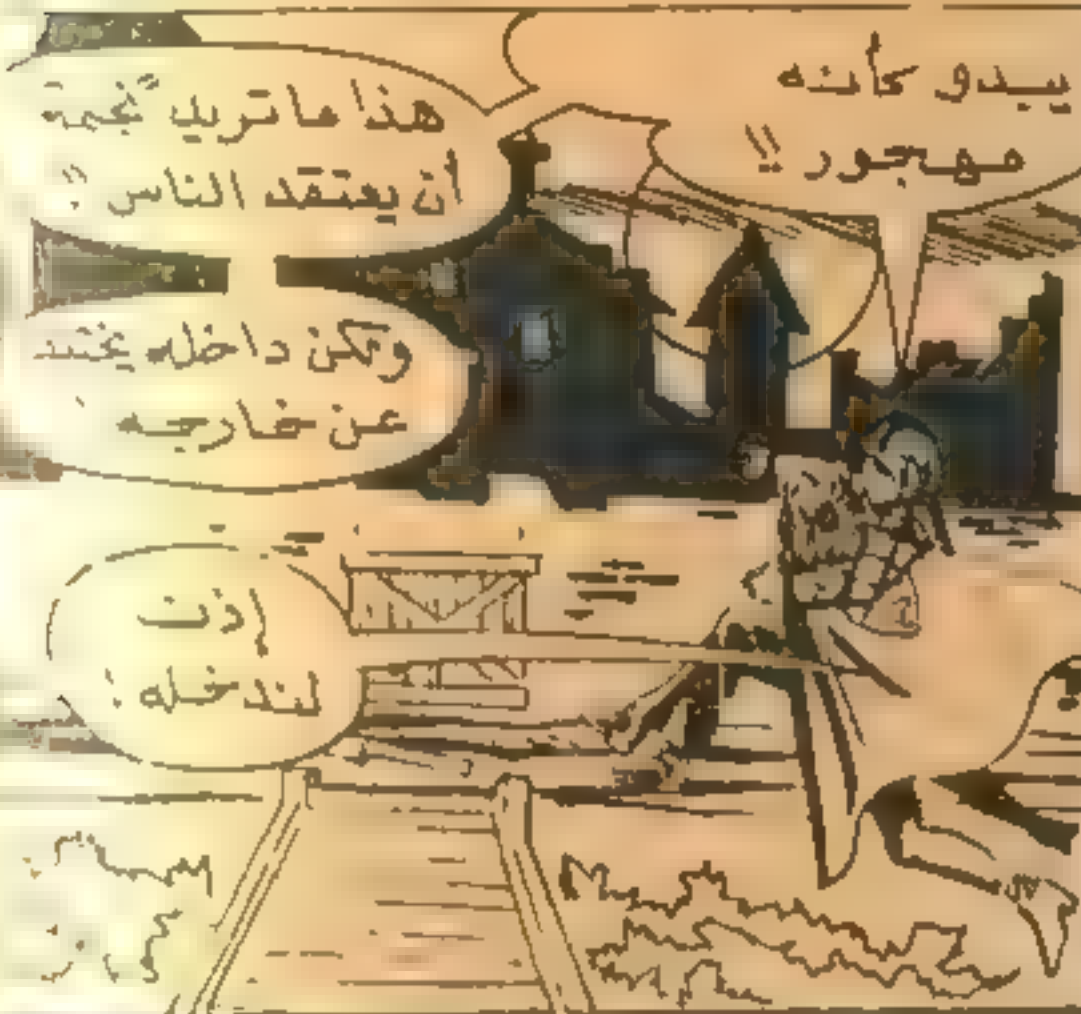 يبدو كأنه
مهجور !!
هذا ما تريد "نجمة"
أن يعتقد الناس !!
ولكن داخله يختلف
عن خارجه
إذن
لندخله !